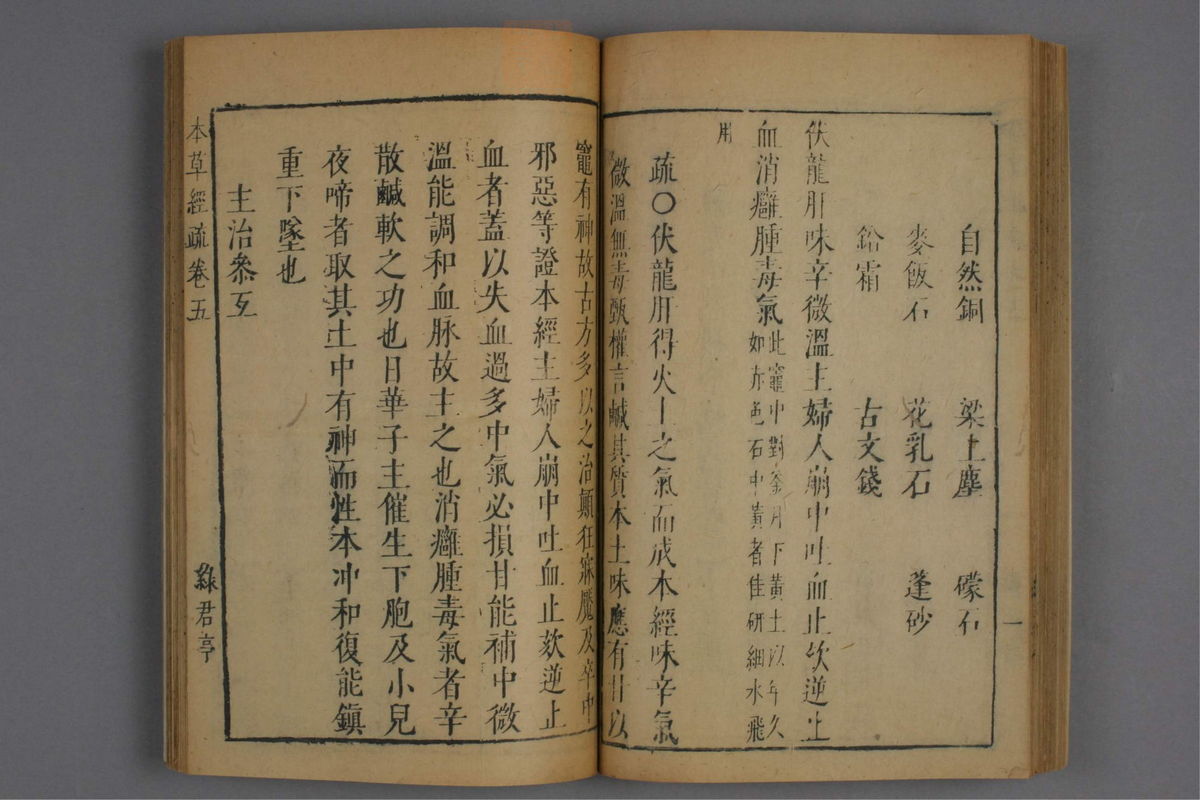 自然銅　梁上塵　礞石
麥飯石　花乳石　蓬砂
鉛霜　古文錢
伏龍肝味辛微溫主婦人崩中吐血止欬逆止
血消癰腫毒氣此竈中對釜月下黃土以年久
如赤色石中黃者佳研細水飛
用
疏〇伏龍肝得火土之氣而成本經味辛氣
微溫無毒甄權言鹹其質本土味應有甘以
竈有神故古方多以之治顛狂寐魘及卒中
邪惡等證本經主婦人崩中吐血止欬逆止
血者蓋以失血過多中氣必損甘能補中微
溫能調和血脉故主之也消癰腫毒氣者辛
散鹹軟之功也日華子主催生下胞及小兒
夜啼者取其土中有神而性本冲和復能鎮
重下墜也
主治叅互
本草經疏卷五
綠君亭
一